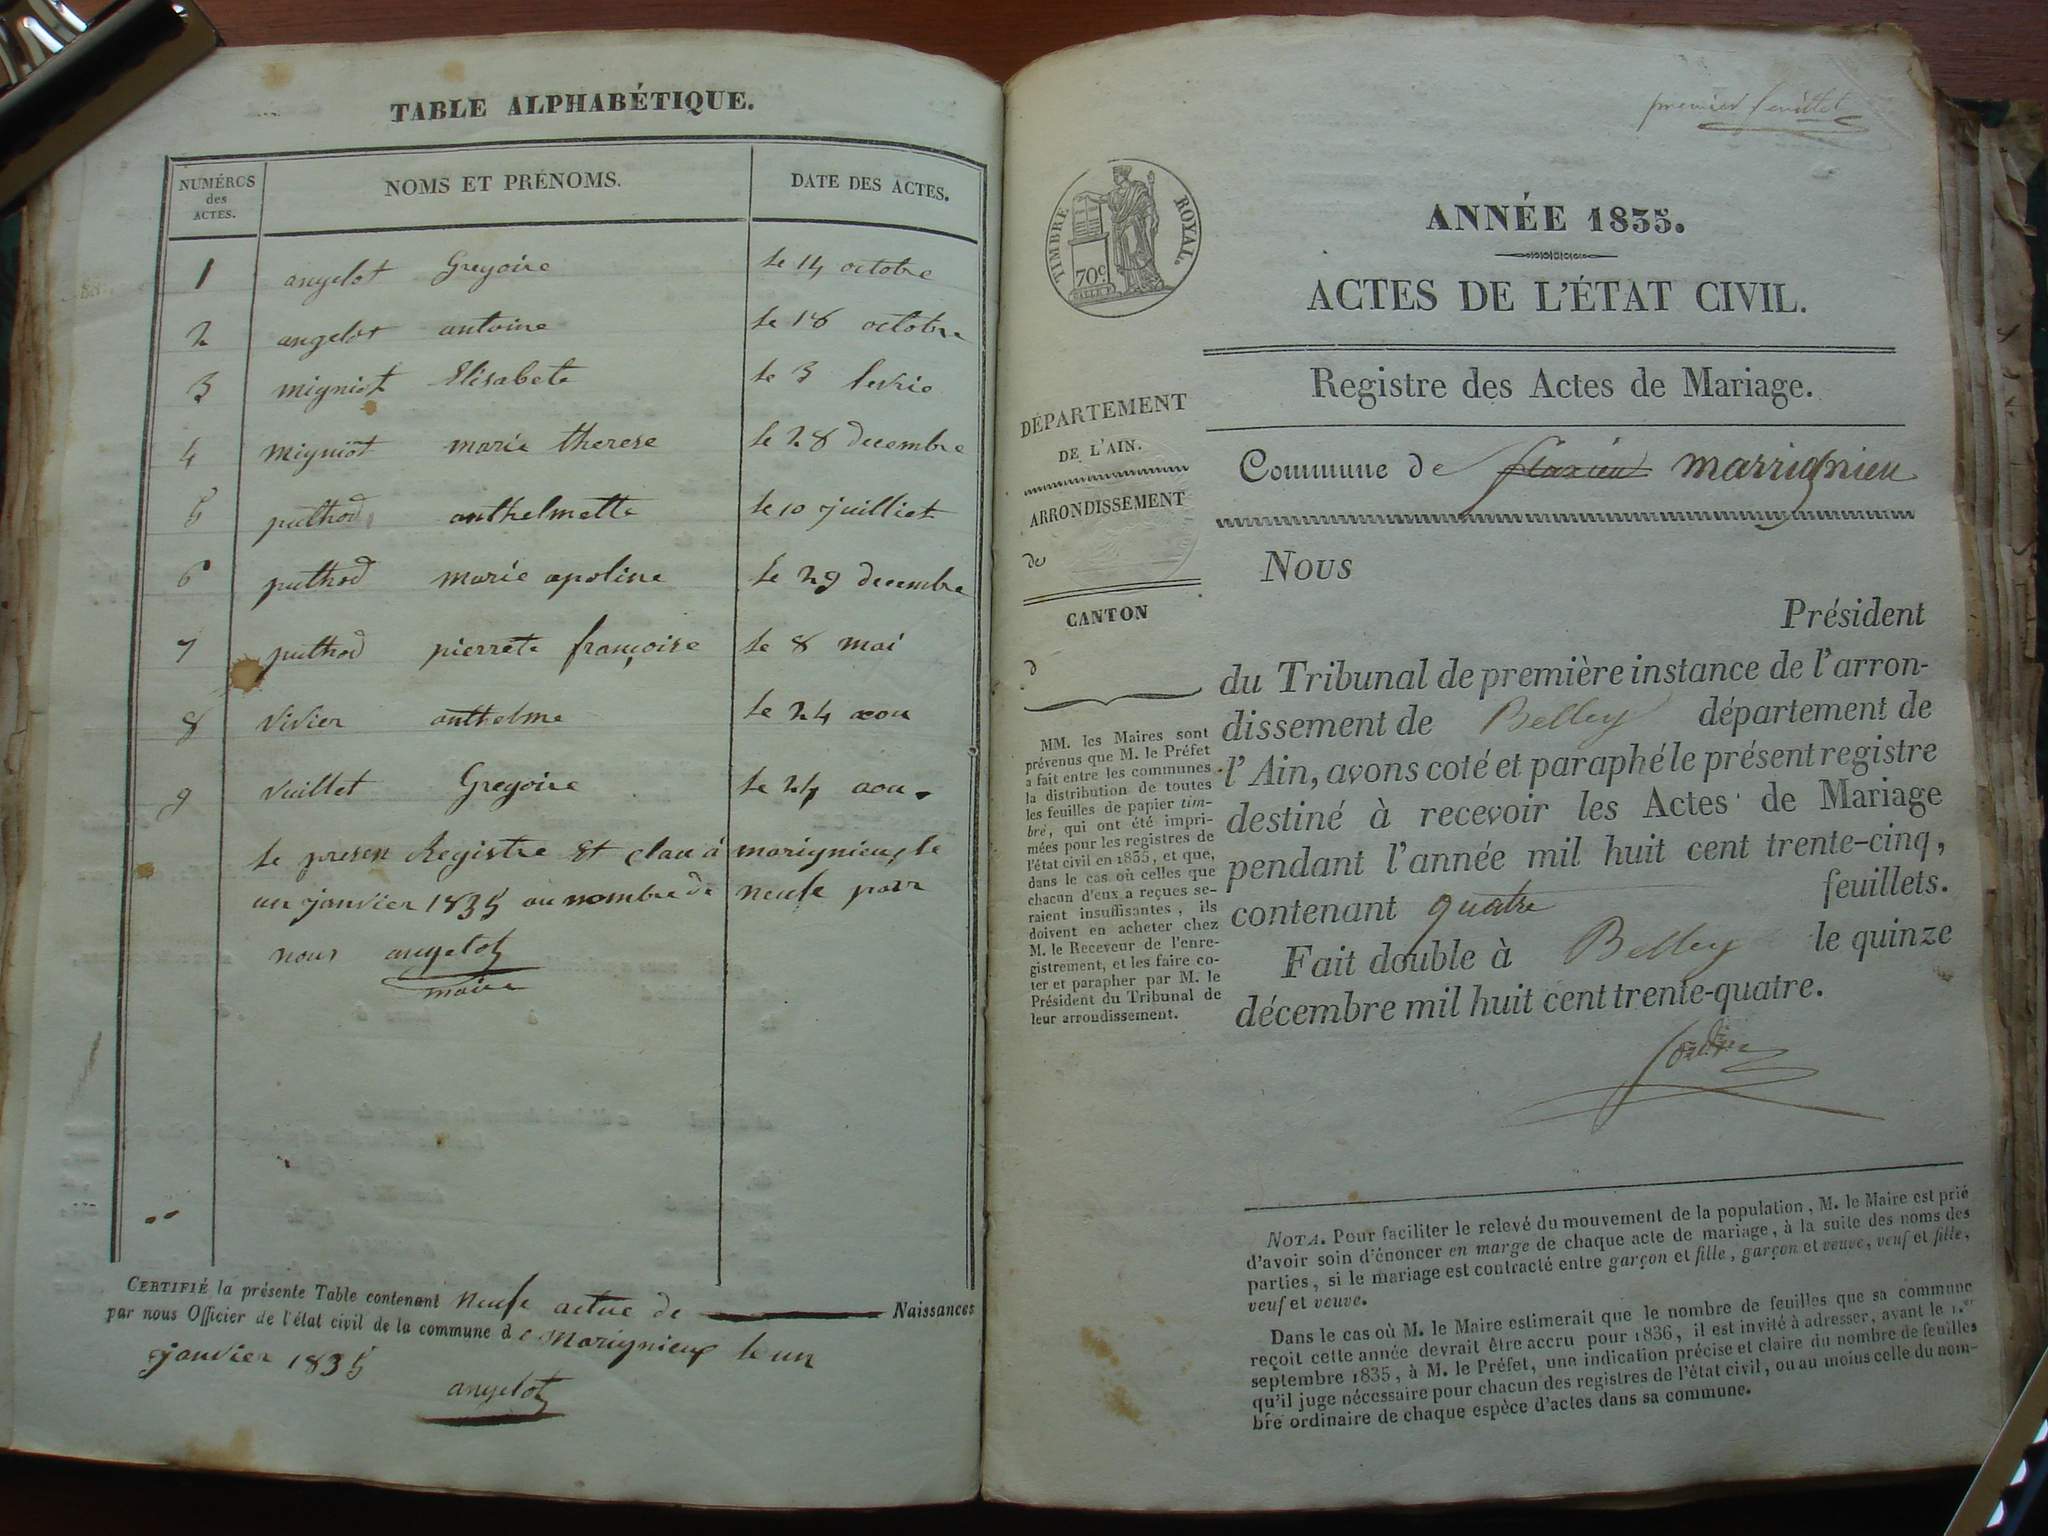 TABLE ALPHABÉTIQUE.
NUMÉROS
des
ACTES.
NOMS ET PRÉNOMS.
DATE DES ACTES.
1 angelot Gregoire le 14 octobre
2 angelot antoine le 18 octobre
3 migniot Elisabete le 3
4 migniot marie therese le 28 decembre
5 puthod anthelmette le 10 juilliet
6 puthod marie apoline le 29 decembre
7 puthod pierrete françoise le 8 mai
8 vivier anthelme le 24 aou
9 vuillet Gregoire le 24 aou.
le presen Registre Et clau à marignieux le
un janvier 1835 au nombre de neufe parr
nous angelot
maire
CERTIFIÉ la présente Table contenant neufe actue de Naissances
par nous Officier de l'état civil de la commune de marignieux le un
janvier 1835
angelot
premier feuillet
TIMBRE ROYAL.
70c
ANNÉE 1835.
ACTES DE L'ÉTAT CIVIL.
Registre des Actes de Mariage.
DÉPARTEMENT
DE L'AIN.
ARRONDISSEMENT
de
CANTON
d
Commune de flaxieu marrignieu
Nous
Président
du Tribunal de première instance de l'arron-
dissement de Belley département de
l'Ain, avons coté et paraphé le présent registre
destiné à recevoir les Actes de Mariage
pendant l'année mil huit cent trente-cinq,
contenant quatre feuillets.
Fait double à Belley le quinze
décembre mil huit cent trente-quatre.
MM. les Maires sont
prévenus que M. le Préfet
a fait entre les communes
la distribution de toutes
les feuilles de papier tim-
bré, qui ont été impri-
mées pour les registres de
l'état civil en 1835, et que,
dans le cas où celles que
chacun d'eux a reçues se-
raient insuffisantes, ils
doivent en acheter chez
M. le Receveur de l'enre-
gistrement, et les faire co-
ter et parapher par M. le
Président du Tribunal de
leur arrondissement.
NOTA. Pour faciliter le relevé du mouvement de la population, M. le Maire est prié
d'avoir soin d'énoncer en marge de chaque acte de mariage, à la suite des noms des
parties, si le mariage est contracté entre garçon et fille, garçon et veuve, veuf et fille,
veuf et veuve.
Dans le cas où M. le Maire estimerait que le nombre de feuilles que sa commune
reçoit cette année devrait être accru pour 1836, il est invité à adresser, avant le 1.er
septembre 1835, à M. le Préfet, une indication précise et claire du nombre de feuilles
qu'il juge nécessaire pour chacun des registres de l'état civil, ou au moins celle du nom-
bre ordinaire de chaque espèce d'actes dans sa commune.